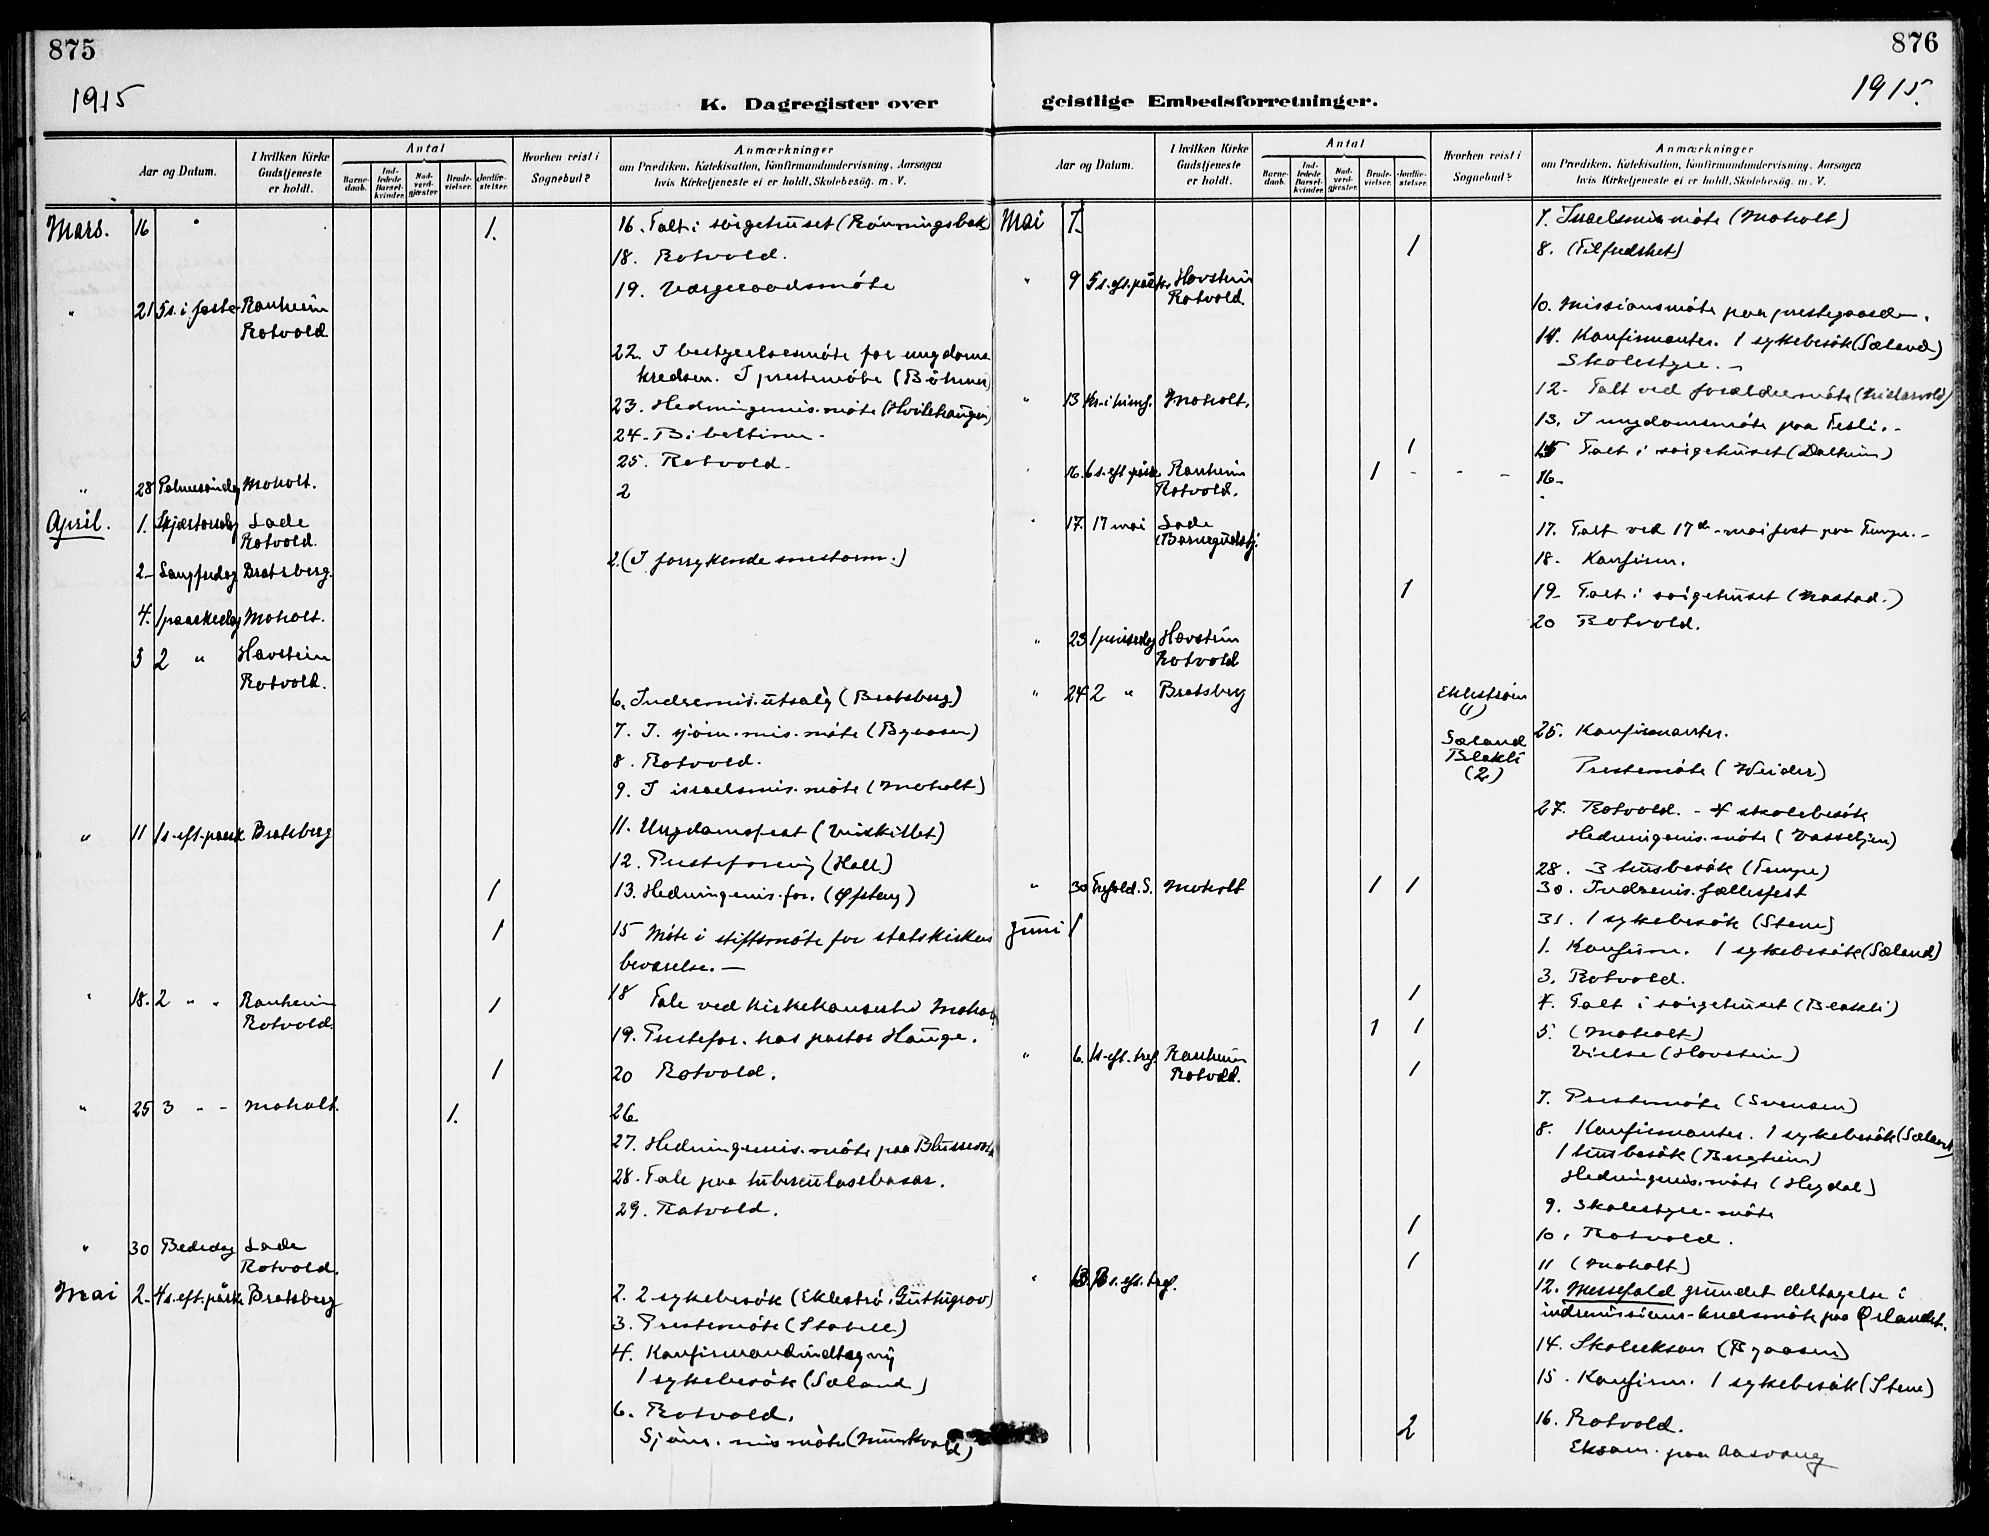 875
1915
K. Dagregister over
Aar og Datum.
I hvilken Kirke Gudstjeneste er holdt.
Antal
Barne-daab.
Ind-ledede Barsel-kvinder.
Nad-verd-gjester.
Brude-vielser.
Jordfæ-stelser.
Hvorhen reist i Sognebud?
Anmærkninger
om Prædiken, Katekisation, Konfirmandundervisning, Aarsagen
hvis Kirketjeneste ei er holdt, Skolebesøg. m. V.
Mars. 16 1. 16. Talt i sørgehuset (Rønningsbak
18. Rotvold.
19. Værgeraadsmøte
" 21 5 s. i faste Ranheim
Rotvold
22. I bestyrelsesmøte for ungdoms
kredsen. I prestemøte (Bøhmer)
23. Hedningemis. møte (Hvilehaugen)
24. Bibeltime.
25. Rotvold.
" 28 Palmesøndag Moholt. 2
April. 1. Skjærtorsdag Lade
Rotvold.
2. (I forrykende snestorm.)
2 Langfredag Bratsberg.
4. 1 paaskedag Moholt.
5 2 " Havstein
Rotvold.
6. Indremis. utsalg (Bratsberg)
7. I sjøm. mis. møte (Byaasen)
8. Rotvold.
9. I israelsmis. møte (Moholt)
" 11 1 s. eft. paask Bratsberg 11. Ungdomsfest
12. Presteforening (Hall)
1 13. Hedningemis. for.
1 15 Møte i stiftsmøte for statskirkens
bevarelse. —
" 18. 2 " " Ranheim 1 18 Tale ved kirkekonsert i Moholt
Rotvold.
19. Prestefor. hos pastor Hauge.
1 20 Rotvold.
" 25 3 - - Moholt. 1. 26.
27. Hedningemis. møte paa
28. Tale paa tuberculosebasar.
29. Rotvold.
" 30 Bededag Lade
Rotvold.
Mai 2. 4 s. eft. påsk Bratsberg 2. 2 sykebesøk
3. Prestemøte (Stabell)
4. Konfirmandindtagning
1 sykebesøk (Sæland)
6. Rotvold.
Sjøm. mis møte
876
1915.
geistlige Embedsforretninger.
Aar og Datum.
I hvilken Kirke Gudstjeneste er holdt.
Antal
Barne-daab.
Ind-ledede Barsel-kvinder.
Nad-verd-gjester.
Brude-vielser.
Jordfæ-stelser.
Hvorhen reist i Sognebud?
Anmærkninger
om Prædiken, Katekisation, Konfirmandundervisning, Aarsagen
hvis Kirketjeneste ei er holdt, Skolebesøg. m. V.
Mai 7. 7. Israelsmis møte (Moholt)
1 8. (Tilfredshet)
" 9 5 s. eft. påsk. Havstein
Rotvold.
10. Missionsmøte paa prestegaarden.
11. Konfirmanter. 1 sykebesøk (Sæland)
Skolestyre. -
12. Talt ved forældremøte
" 13 Kr. i himf. Moholt.
13. I ungdomsmøte paa Tesli. -
1 15 Talt i sørgehuset (Dalheim)
" 16. 6 s. eft påsk Ranheim 1 - - - 16 -
Rotvold.
" 17. 17 mai Lade 17. Talt ved 17de mai fest paa Tempe. -
(Barnegudstj.
18. Konfirm.
1 19. Talt i sørgehuset
20 Rotvold.
" 23 1 pinsedag Havstein
Rotvold
" 24 2 " Bratsberg Eklestrøm
(1)
25. Konfirmanter.
Sæland
Blakli
(2)
Prestemøte (Weider)
27. Rotvold. - 4 skolebesøk
Hedningemis. møte (Vasseljen)
28. 3 husbesøk (Tempe)
" 30 Trefold. S. Moholt 1 1 30. Indremis. fællesfest
31. 1 sykebesøk (Stene)
Juni 1 1. Konfirm. 1 sykebesøk (Sæland)
3. Rotvold.
1 4. Talt i sørgehuset (Blakli)
1 1 5. (Moholt)
Vielse (Havstein)
" 6. 1 s. eft. tref. Ranheim 1
Rotvold.
7. Prestemøte (Svensen)
8. Konfirmanter. 1 sykebesøk (Sæland)
1 husbesøk (Bergheim)
Hedningemis. møte (Hegdal)
9. Skolestyre - møte
1 10. Rotvold.
1 11 (Moholt)
" 13. 2 s. eft. tref. 12. Messefald grundet deltagelse i
indremissions-kredsmøte paa Ørlandet.
14. Skoleeksam (Byaasen)
15. Konfirm. 1 sykebesøk (Stene)
2 16. Rotvold.
Eksam. paa Aasvang